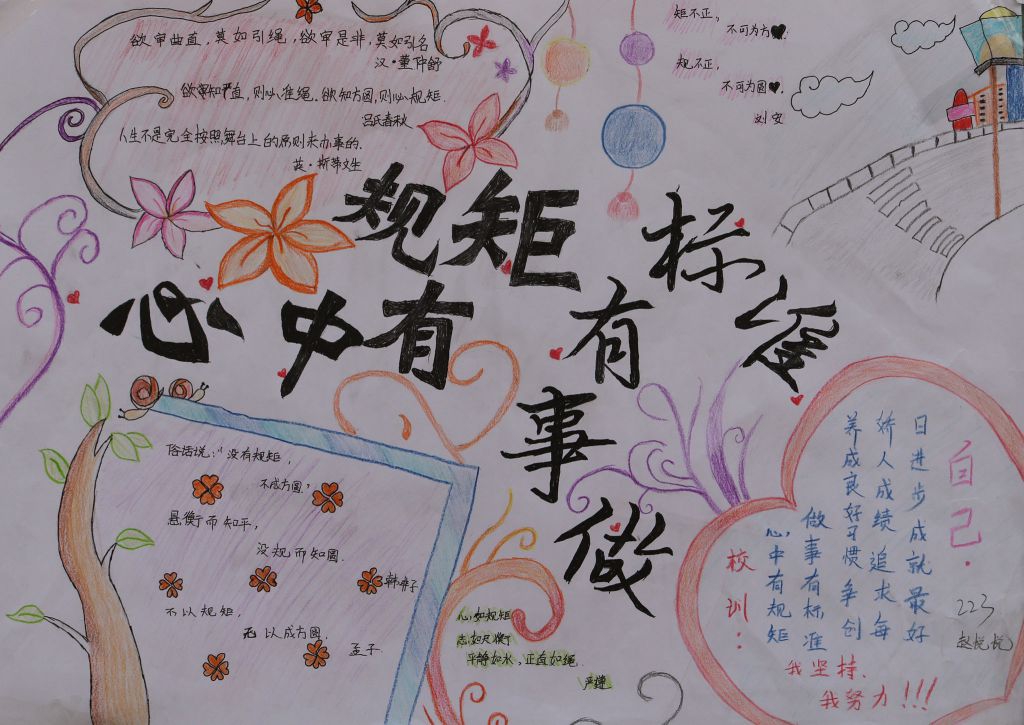 欲审曲直，莫如引绳，欲审是非，莫如引名
汉·董仲舒
欲知平直，则必准绳。欲知方圆，则必规矩.
吕氏春秋
人生不是完全按照舞台上的原则来办事的.
英·斯蒂文生
矩不正，
不可为方
规不正，
不可为圆
刘安
规矩
心中有
标准
有
事
做
俗话说："没有规矩，
不成方圆"
悬衡而知平，
没规而知圆.
韩非子
不以规矩，
无以成方圆.
孟子
心如规矩
志如尺衡
平静如水，正直如绳.
严遵
自己.
日进步成就最好
娇人成绩追求每
养成良好习惯争创
做事有标准
心中有规矩
校训：
我坚持.
我努力!!!
223